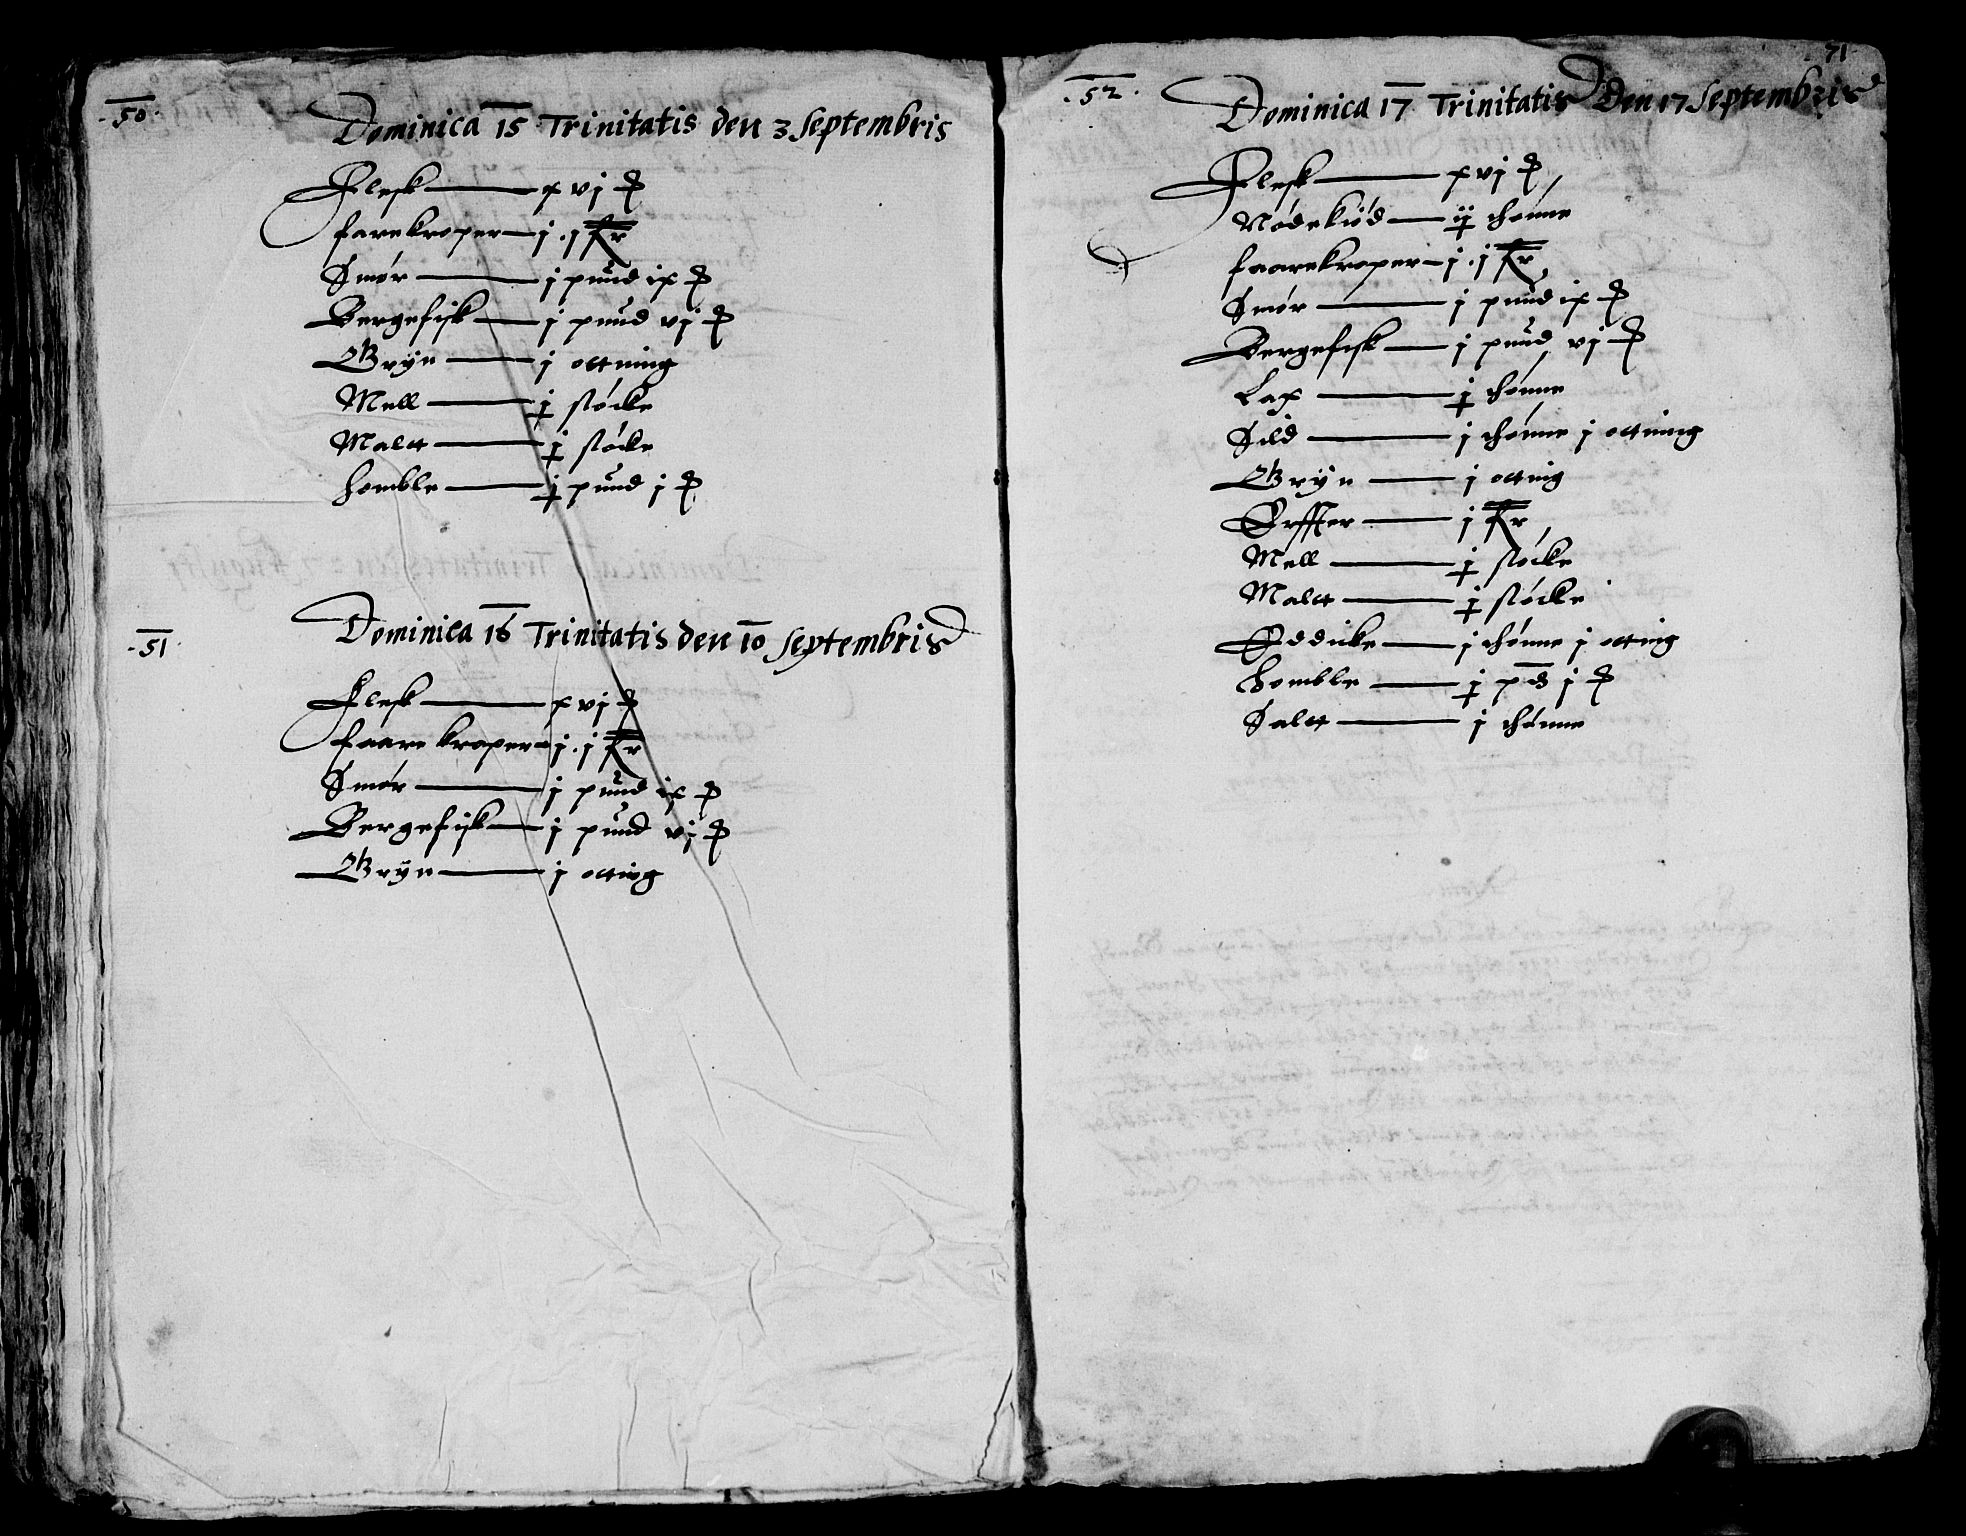 50.
Dominica 15 Trinitatis den 3 Septembris
Flesk — xvj ℔
farekroper — j . j fr
Smør — j pund ix ℔
Bergefisk — j pund vj ℔
Gryn — j ottning
Mell — j støcke
Maltt — j støcke
homble — j pund j ℔
51
Dominica 16 Trinitatis den 10 Septembris
Flesk — xvj ℔
faare kroper — j . j fr
Smør — j pund ix ℔
Bergefisk — j pund vj ℔
Gryn — j otting
71
52.
Dominica 17 Trinitatis Den 17 Septembris
Flesk — xvj ℔
Nødekiød — ij thønne
faarekroper — j . j fr
Smør — j pund ix ℔
Bergefisk — j pund vj ℔
Lax — j thønne
Sild — j thønne j ottning
Gryn — j otting
Erffter — j fr
Mell — j støcke
Maltt — j støcke
Eddicke — j thønne j otting
homble — j pd j ℔
Saltt — j thønne